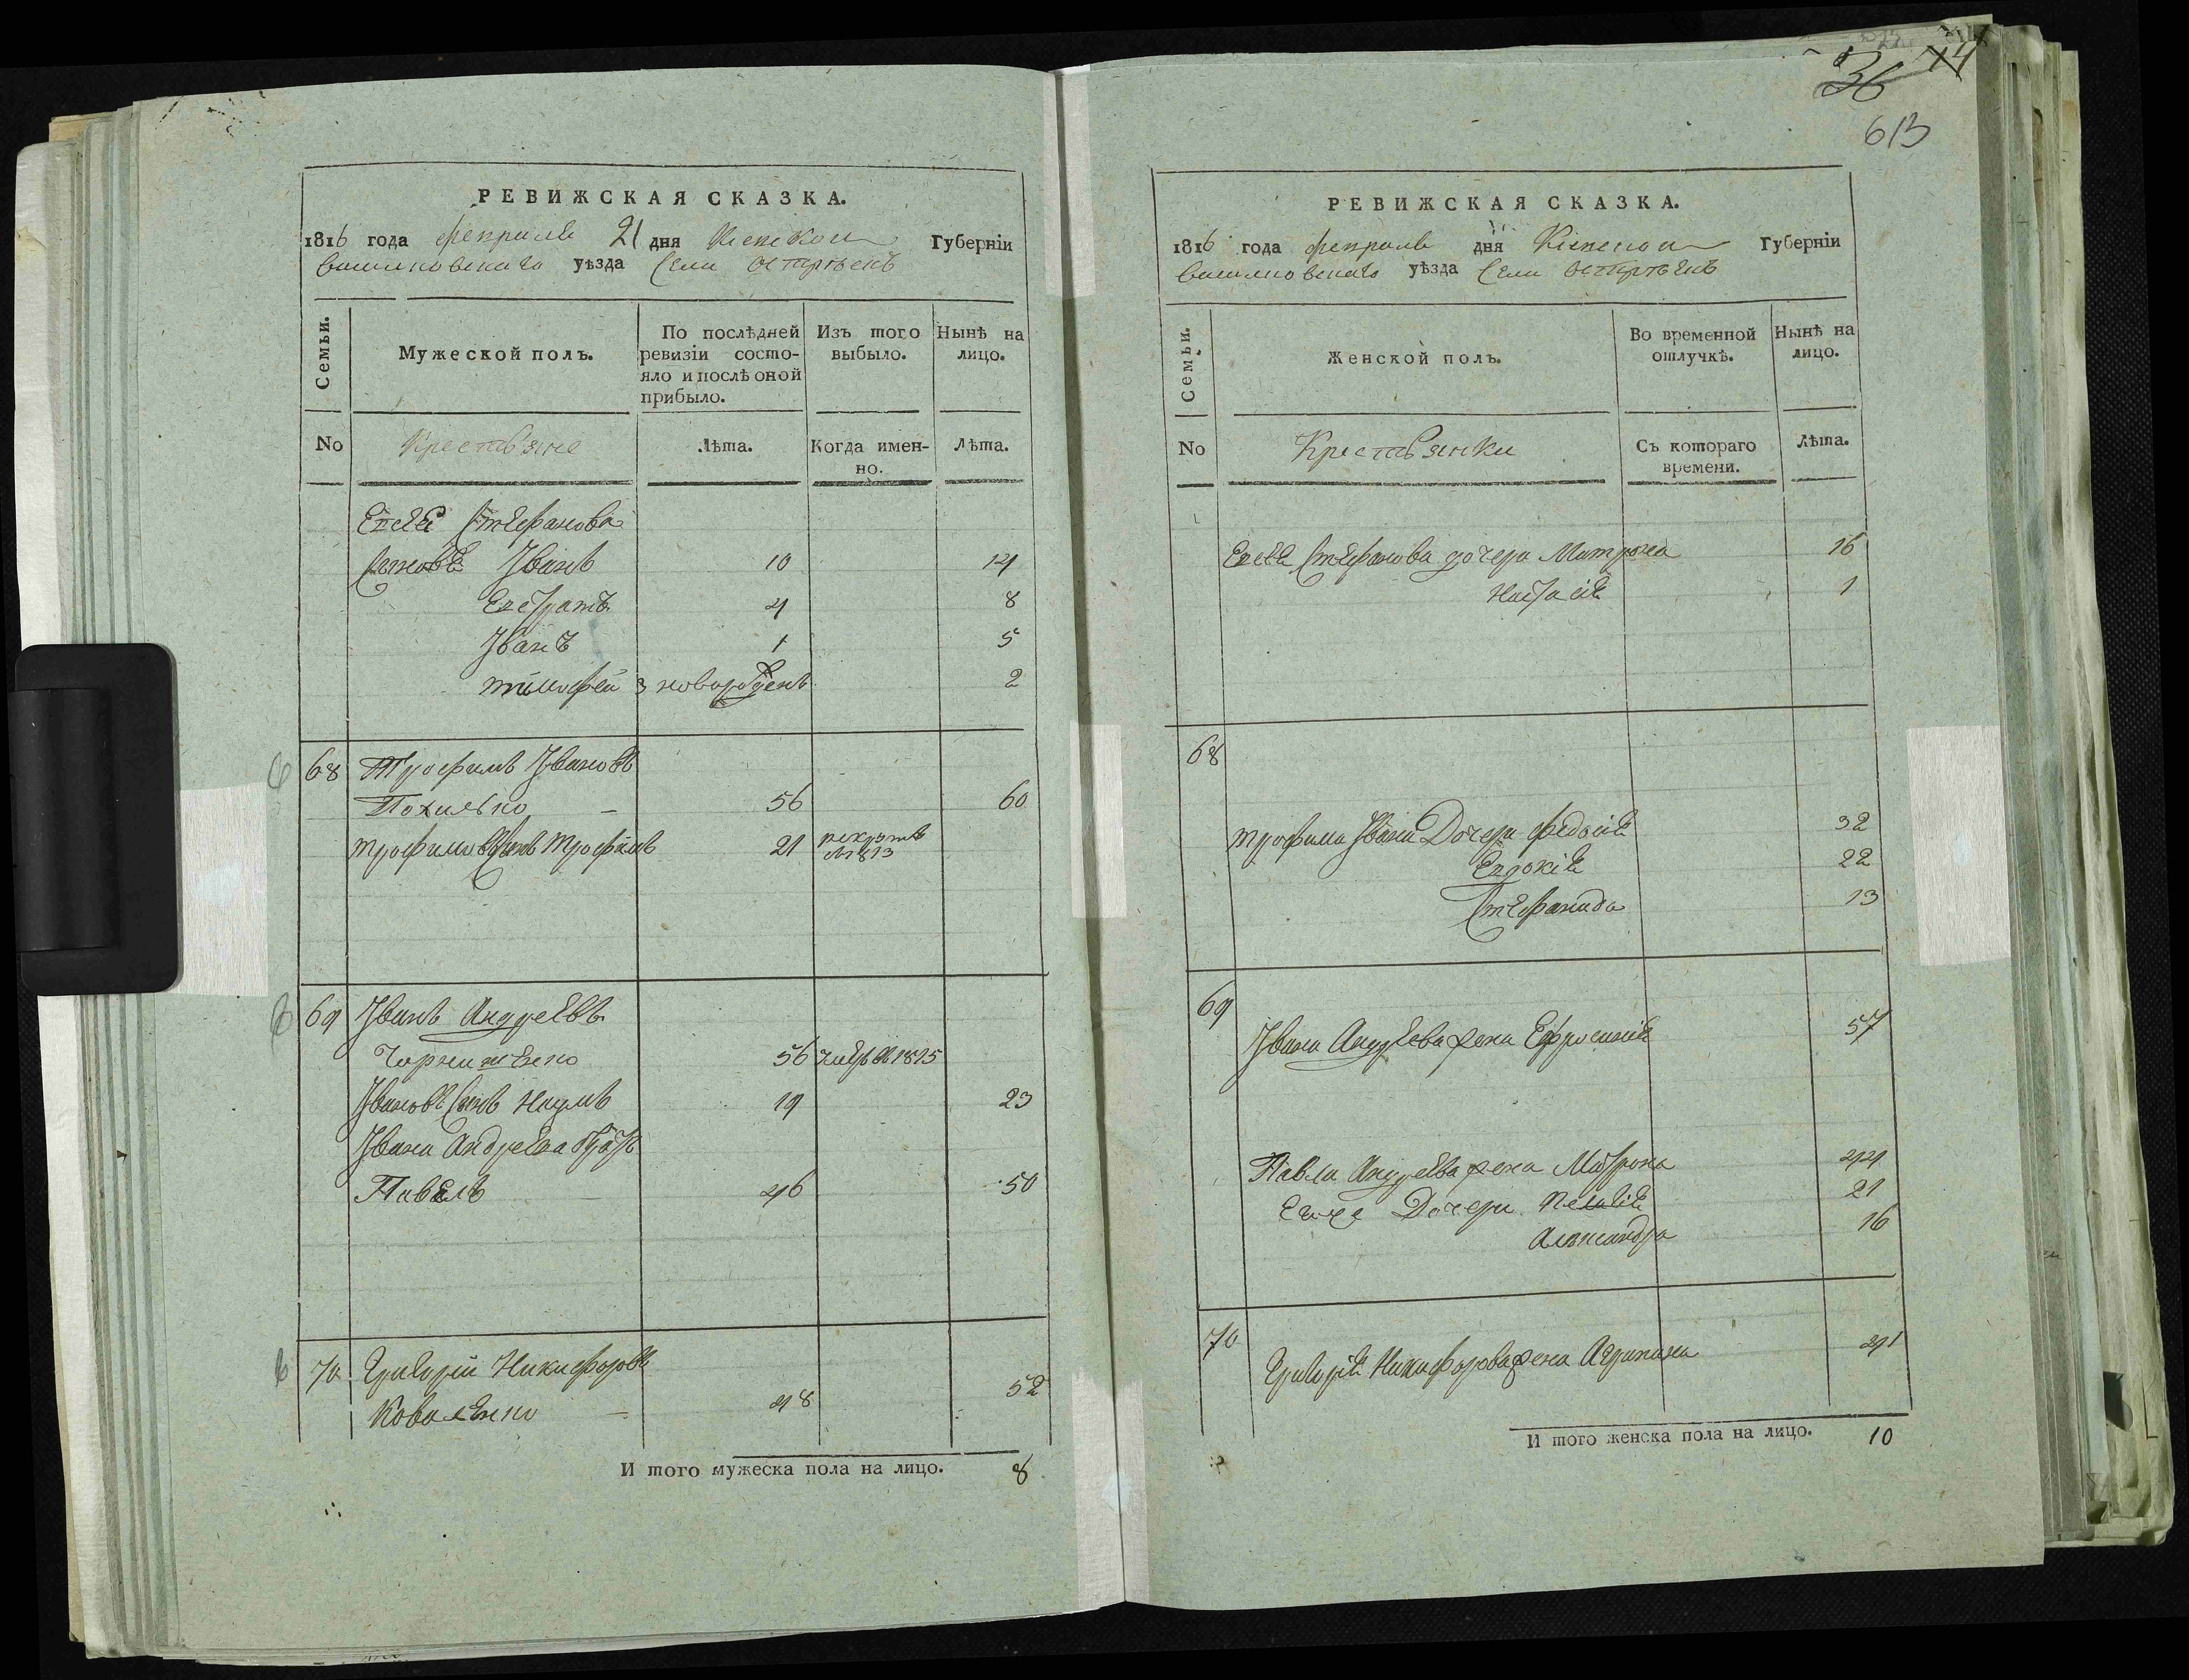 РЕВИЖСКАЯ СКАЗКА.
1816 года февраля 21 дня Киевской Губерніи
васильковскаго уѣзда Села
Семьи.
Мужеской полъ.
По послѣдней ревизіи состо-
яло и послѣ оной
прибыло.
Изъ того
выбыло.
Нынѣ на
лицо.
No Крестьяне Лѣта. Когда имен-
но. Лѣта.
Стефанова
Сыновья Іванъ 10 14
4 8
Іванъ 1 5
тимофей 3 новорожденъ 2
68 Трофимъ Івановъ
Похилько 56 60
трофимовъ Сынъ трофимъ 21 рекрутъ
в 1813
69 Іванъ Андреевъ
56 1815
Івановъ Сынъ Наумъ 19 23
Івана Андреева братъ
Павелъ 46 50
70 Григорій Никифоровъ
Коваленко 48 52
И того мужеска пола на лицо. 8
36 74
613
РЕВИЖСКАЯ СКАЗКА.
1816 года февраля дня Кіевской Губерніи
васильковскаго уѣзда Села
Семьи.
Женской полъ.
Во временной
отлучкѣ.
Нынѣ на
лицо.
No Крестьянки Съ котораго
времени. Лѣта.
Стефанова дочери Матрона 16
Настасія 1
68
трофима Івана Дочери федосія 32
Евдокія 22
Стефанида 13
69
Івана Андреева жена Ефросинія 57
Павла Андреева жена Матрона 44
Дочери Пелагія 21
Александра 16
70
Григорія Никифорова жена Агрипина 41
И того женска пола на лицо. 10